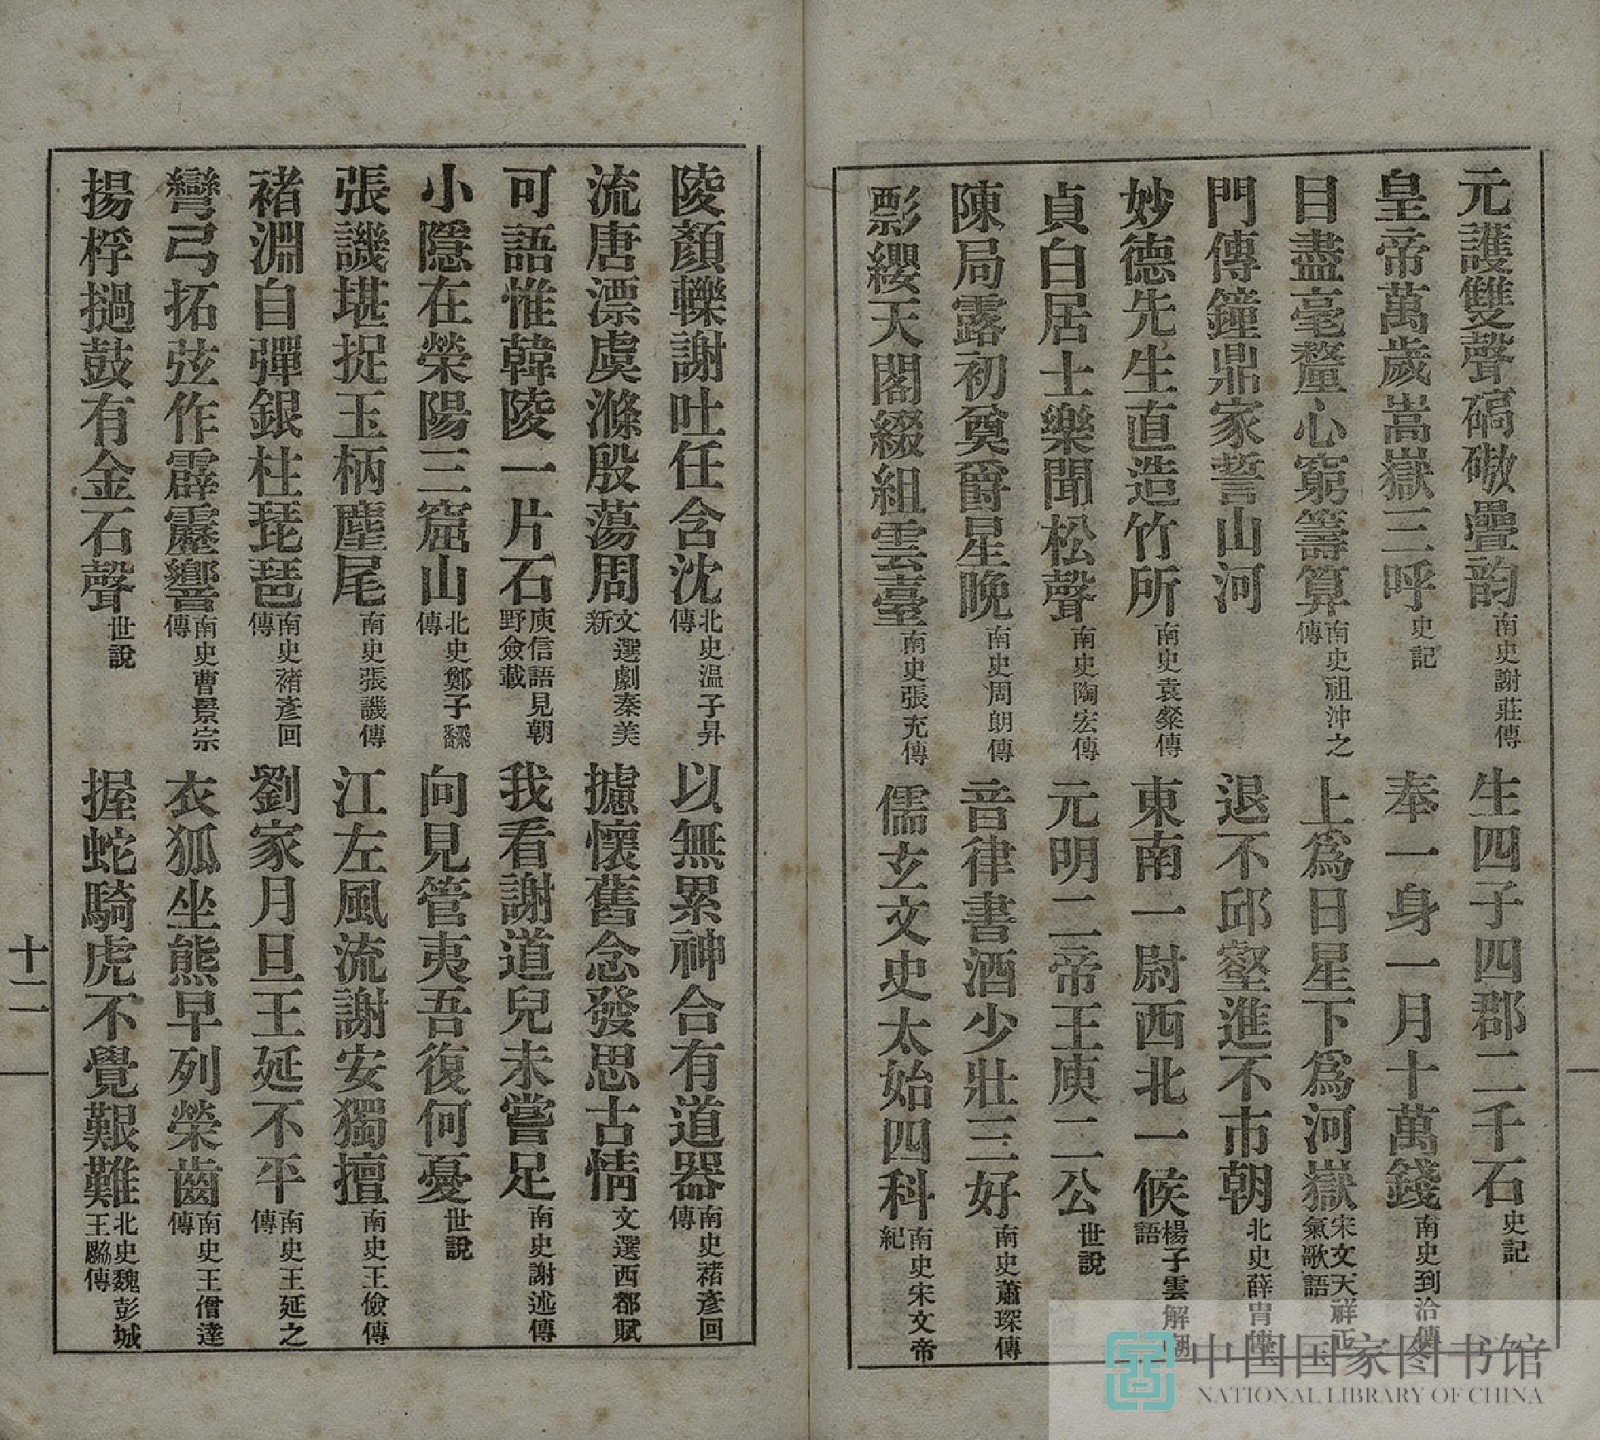 元護雙聲碻磝疊韵南史謝莊傳　生四子四郡二千石史記
皇帝萬歲嵩嶽三呼史記　奉一身一月十萬錢南史到洽傳
目盡毫釐心窮籌算南史祖沖之傳　上爲日星下爲河嶽宋文天祥正氣歌語
門傳鐘鼎家誓山河　退不邱壑進不市朝北史薛冑傳
妙德先生直造竹所南史袁粲傳　東南一尉西北一候楊子雲解嘲語
貞白居士樂聞松聲南史陶宏傳　元明二帝王庾二公世說
陳局露初奠爵星晚南史周朗傳　音律書酒少壯三好南史蕭琛傳
影纓天閣綴組雲臺南史張充傳　儒玄文史太始四科南史宋文帝紀
陵顏轢謝吐任含沈北史溫子昇傳　以無累神合有道器南史褚彥回傳
流唐漂虞滌殷蕩周文選劇秦美新　攄懷舊念發思古情文選西都賦
可語惟韓陵一片石庾信語見朝野僉載　我看謝道兒未嘗足南史謝述傳
小隱在滎陽三窟山北史鄭子翻傳　向見管夷吾復何憂世說
張譏堪捉玉柄麈尾南史張譏傳　江左風流謝安獨擅南史王儉傳
褚淵自彈銀柱琵琶南史褚彥回傳　劉家月旦王延不平南史王延之傳
彎弓拓弦作霹靂響南史曹景宗傳　衣狐坐熊早列榮齒南史王僧達傳
揚桴撾鼓有金石聲世說　握蛇騎虎不覺艱難北史魏彭城王勰傳
十二
中国国家图书馆
NATIONAL LIBRARY OF CHINA